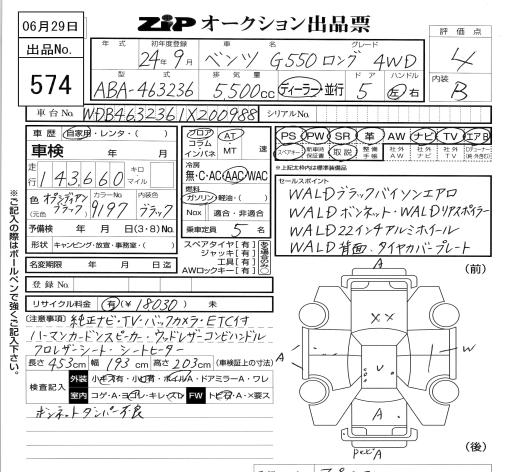 06月29日
出品No.
574
ZIP オークション出品票
評価点
4
内装
B
年式 初年度登録 車名 グレード
24年9月 ベンツ G550 ロング 4WD
型式 排気量 ドア ハンドル
ABA-463236 5,500cc ディーラー・並行 5 左・右
車台No. WDB4632361X200988 シリアルNo.
車歴 自家用・レンタ・( )
車検 年 月
走行 143,660 キロ マイル
色 オブシディアンブラック カラーNo 9197 内装色 ブラック
(元色 )
予備検 年 月 日(3・8) No.
形状 キャンピング・放宣・事務室・( )
名変期限 年 月 日迄
フロア コラム インパネ AT MT 速
冷房
無・C・AC・AAC・WAC
燃料
ガソリン・軽油・( )
Nox 適合・非適合
乗車定員 5 名
スペアタイヤ[有]
ジャッキ[有]
工具[有]
AWロックキー[有]
PS PW SR 革 AW ナビ TV エアB
スペアキー 新車時保証書 取説 整備手帳 社外AW 社外ナビ 社外TV
※上記太枠内は標準装備品
セールスポイント
WALDブラックバイソンエアロ
WALDボンネット・WALDリアスポイラー
WALD22インチアルミホイール
WALD背面タイヤカバープレート
登録No.
リサイクル料金 有(¥ 18030 ) 未
(注意事項) 純正ナビ・TV・バックカメラ・ETC付
ハーマンカードンスピーカー・ウッドレザーコンビハンドル
フロレザーシート・シートヒーター
長さ 453cm 幅 193cm 高さ 203cm (車検証上の寸法)
検査記入 外装 小キズ有・小凹有・ホイルA・ドアミラーA・ワレ
室内 コゲ・A・ヨゴレ・キレ・スレ FW トビ石・A・×要ス
ボンネットダンパー不良
※ご記入の際はボールペンで強くご記入下さい。
(前)
A
XX
A
W
V
A
(後)